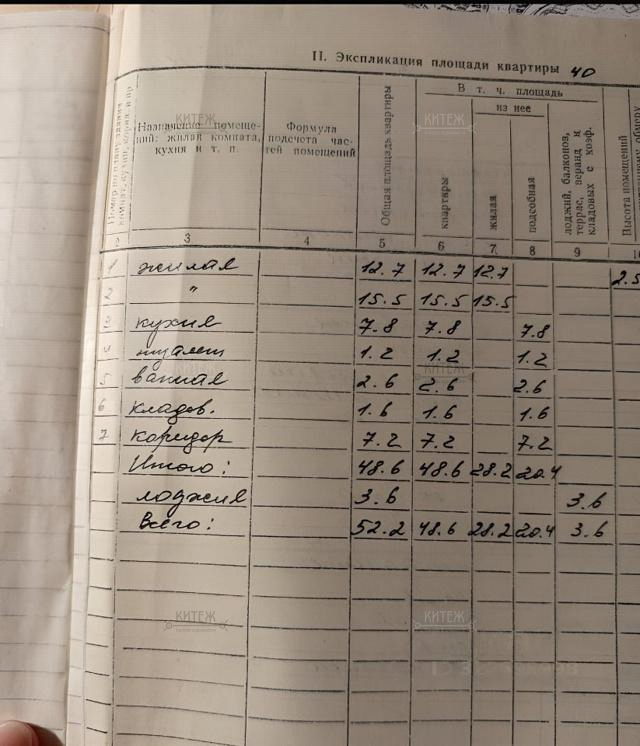 II. Экспликация площади квартиры 40
Назначение помеще-
ний: жилая комната,
кухня и т. п.
Формула
подсчета час-
тей помещений
Общая площадь квартиры
В т. ч. площадь
из нее
квартиры
жилая
подсобная
лоджий, балконов,
террас, веранд и
кладовых с коэф.
Высота помещений
2 3 4 5 6 7 8 9 10
1 жилая 12.7 12.7 12.7 2.5
2 " 15.5 15.5 15.5
3 кухня 7.8 7.8 7.8
4 туалет 1.2 1.2 1.2
5 ванная 2.6 2.6 2.6
6 кладов. 1.6 1.6 1.6
7 коридор 7.2 7.2 7.2
Итого: 48.6 48.6 28.2 20.4
лоджия 3.6 3.6
Всего: 52.2 48.6 28.2 20.4 3.6
КИТЕЖ
КИТЕЖ
КИТЕЖ
КИТЕЖ
КИТЕЖ